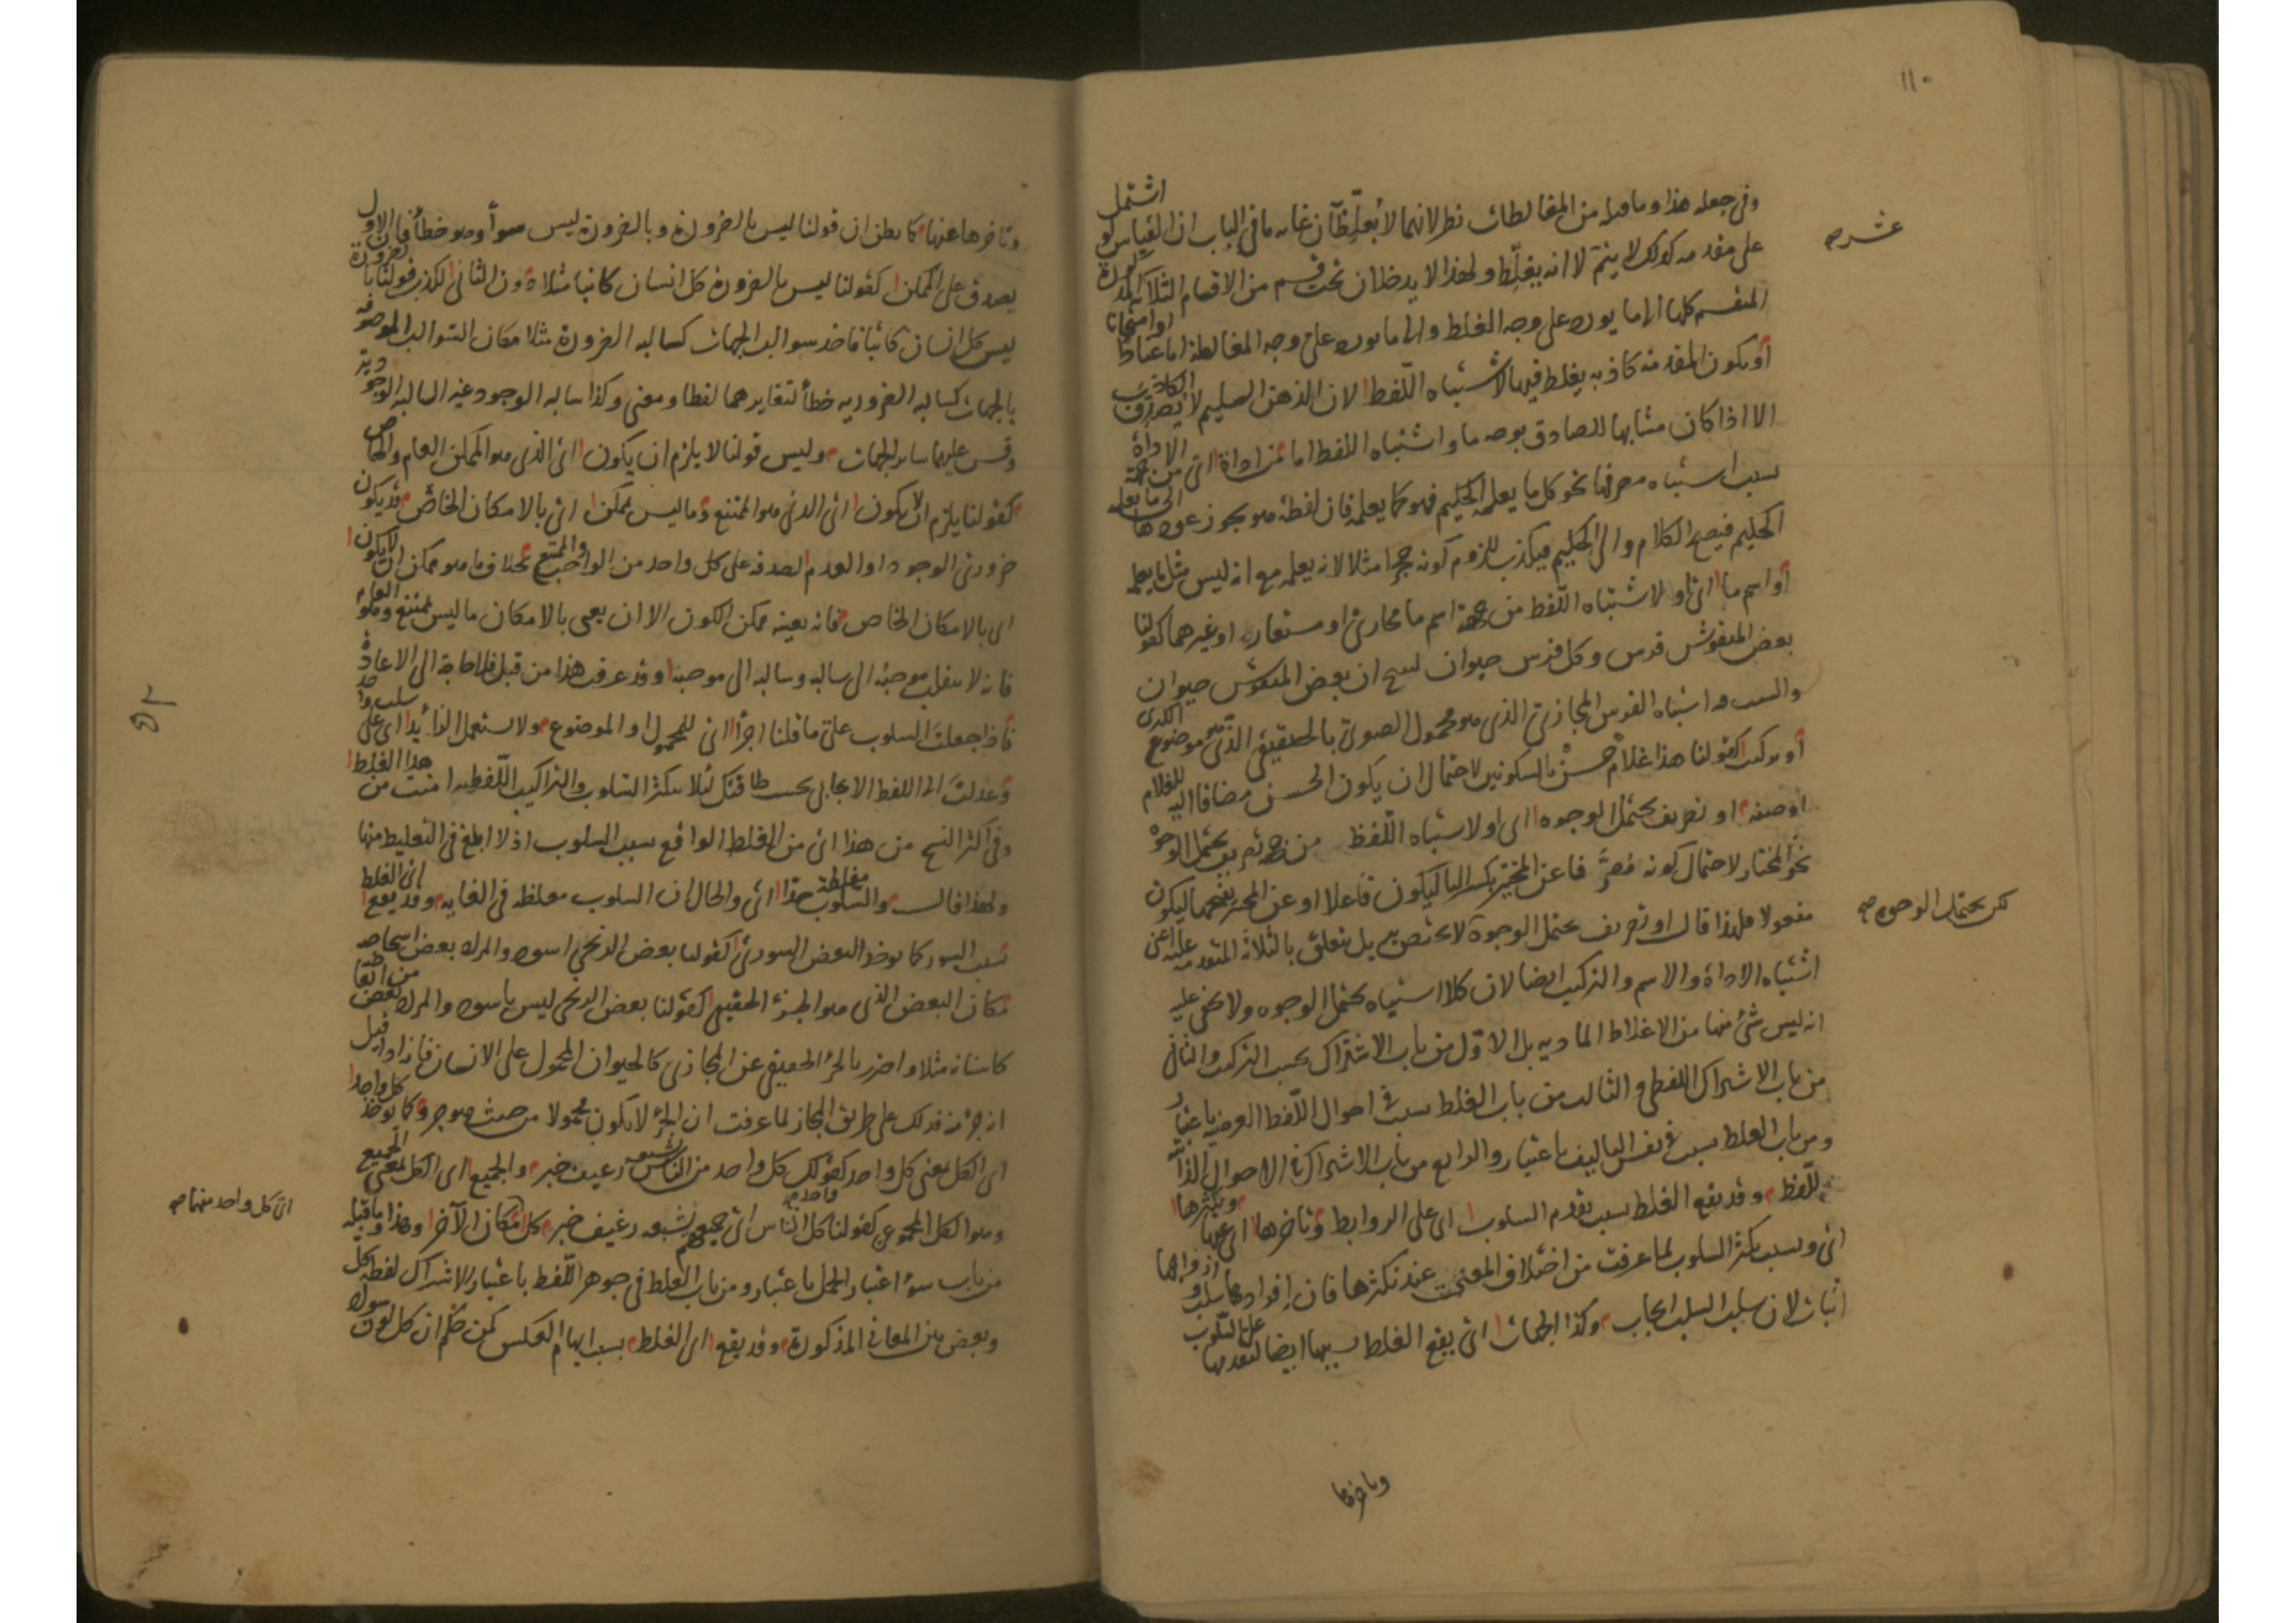 ١١٠
وفي جعله هذا وما قبله من المغالطات نظر لانهما لا يُغلِّطان غايه ما في الباب ان القياس لو اشتمل
على مقدمه كذلك لا ينتج لا انه يغلّط ولهذا لا يدخلان تحت قسم من الاقسام الثلاثه
المنقسم كلها الى ما يورد على وجه الغلط والى ما يورد على وجه المغالطة اما عنادًا او امتحانا
أو يكون المقدمة كاذبه يغلط فيها لاشتباه اللّفظ لان الذهن السليم لا يُصدِّق الكاذب
الا اذا كان مشابها للصادق بوجه ما واشتباه اللفظ اما من اداة اي من جهة الاداة
بسبب اشتباه مصرفها نحو كل ما يعلمه الحكيم فهو كما يعلمه فان لفظة هو يجوز عودها الى ما يعلمه
الحكيم فيصح الكلام والى الحكيم فيكذب للزوم كونه حجرا مثلا لانه يعلمه مع انه ليس مثل ما يعلمه
أو اسم ما اي او لاشتباه اللّفظ من جهة اسم ما مجازي او مستعار او غيرهما كقولنا
بعض المنقوش فرس وكل فرس حيوان ينتج ان بعض المنقوش حيوان
والسبب فيه اشتباه الفرس المجازي الذي هو محمول الصغرى بالحقيقي الذي هو موضوع الكبرى
أو تركيب كقولنا هذا غلام حسن بالسكونين لاحتمال ان يكون الحسن مضافا اليه للغلام
او صفته او تصريف يحتمل الوجوه اي او لاشتباه اللّفظ من جهة تصريف يحتمل الوجوه
نحو المختار لاحتمال كونه مُصرَّفا عن المختير بكسر اليا ليكون فاعلا او عن المختير بفتحها ليكون
مفعولا فلهذا قال او تصريف يحتمل الوجوه لا يختص به بل يتعلق بالثلاثة المتقدمه عليه اعني
اشتباه الاداة والاسم والتركيب ايضا لان كلا اشتباه يحتمل الوجوه ولا يخفى عليه
انه ليس شئ منها من الاغلاط الماديه بل الاوّل من باب الاشتراك بحسب التركيب والثاني
من باب الاشتراك اللفظي والثالث من باب الغلط بسبب في احوال اللّفظ العرضيه باعتبار
ومن باب الغلط بسبب في نفس التاليف باعتبار والرابع من باب الاشتراك في الاحوال الذاتيه
للّفظ وقد يقع الغلط بسبب تقدم السلوب اي على الروابط وتاخرها اي عنها وبكثرها
اي وبسبب تكثر السلوب لما عرفت من اختلاف المعنى عند تكثرها فان افرادها سلب وازواجها
اثبات لان سلب السلب ايجاب وكذا الجهات اي يقع الغلط بسببها ايضا لتقدمها على السلوب
وتاخرها
لكن يحتمل الوجوه صح
وتاخرها عنها كما يظن ان قولنا ليس بالضرورة وبالضرورة ليس سواء وهو خطأ فان الاول
يصدق على الممكن كقولنا ليس بالضرورة كل انسان كاتبا مثلا دون الثاني لكذب قولنا بالضرورة
ليس كل انسان كاتبا فاخذ سوالب الجهات كسالبه الضرورة مثلا مكان السوالب الموجهه
بالجهات كسالبه الضروريه خطأ لتغايرهما لفظا ومعنى وكذا سالبه الوجود غير السالبه الوجوديه
وقس عليهما ساير الجهات وليس قولنا لا يلزم ان يكون اي الذي هو الممكن العام والخاص
كقولنا يلزم ان لا يكون اي الذي هو الممتنع وما ليس بممكن اي بالامكان الخاص قد يكون
ضروري الوجود او العدم لصدقه على كل واحد من الواجب والممتنع بخلاف ما هو ممكن ان لا يكون
اي بالامكان الخاص فانه بعينه ممكن الكون الا ان يعنى بالامكان ما ليس بممتنع وهو العام
فانه لا ينقلب موجبه الى سالبه وسالبه الى موجبه وقد عرفت هذا من قبل فلا حاجة الى الاعادة
فاذا جعلت السلوب على ما قلنا اجزا اي للمحمول او الموضوع ولا تستعمل الزايد اي على سلب واحد
وعدلت الى اللفظ الايجابي بحسب طاقتك لئلا يكثر السلوب والتراكيب اللّفظيه امنت من هذا الغلط
وفي اكثر النسخ من هذا اي من الغلط الواقع بسبب السلوب اذ لا ابلغ في التغليط منها
ولهذا قال والسلوب مغلطة جدا اي والحال ان السلوب مغلطه في الغايه وقد يقع اي الغلط
بسبب السور كما يوخذ البعض السوري كقولنا بعض الزنجي اسود والمراد بعض اشخاصه
مكان البعض الذي هو الجزء الحقيقي كقولنا بعض الزنجي ليس باسود والمراد بعض من ابعاضه
كاسنانه مثلا واحترز بالجزء الحقيقي عن المجازي كالحيوان المحمول على الانسان فانه اذا قيل
انه جزء منه فذلك على طريق المجاز لما عرفت ان الجزء لا يكون محمولا من حيث هو جزء وكما يوخذ كل واحد
اي الكل بمعنى كل واحد كقولك كل واحد من الناس يشبعه رغيف خبز والجميع اي الكل بمعنى الجميع
وهو الكل المجموعي كقولنا كل الناس اي جميعهم يشبعه رغيف خبز كل مكان الآخر وهذا وما قبله
من باب سوء اعتبار الحمل باعتبار ومن باب الغلط في جوهر اللّفظ باعتبار الاشتراك لفظه كل
وبعض بين المعاني المذكورة وقد يقع اي الغلط بسبب ايهام العكس كمن حكم ان كل لون سواد
اي كل واحد منهما صح